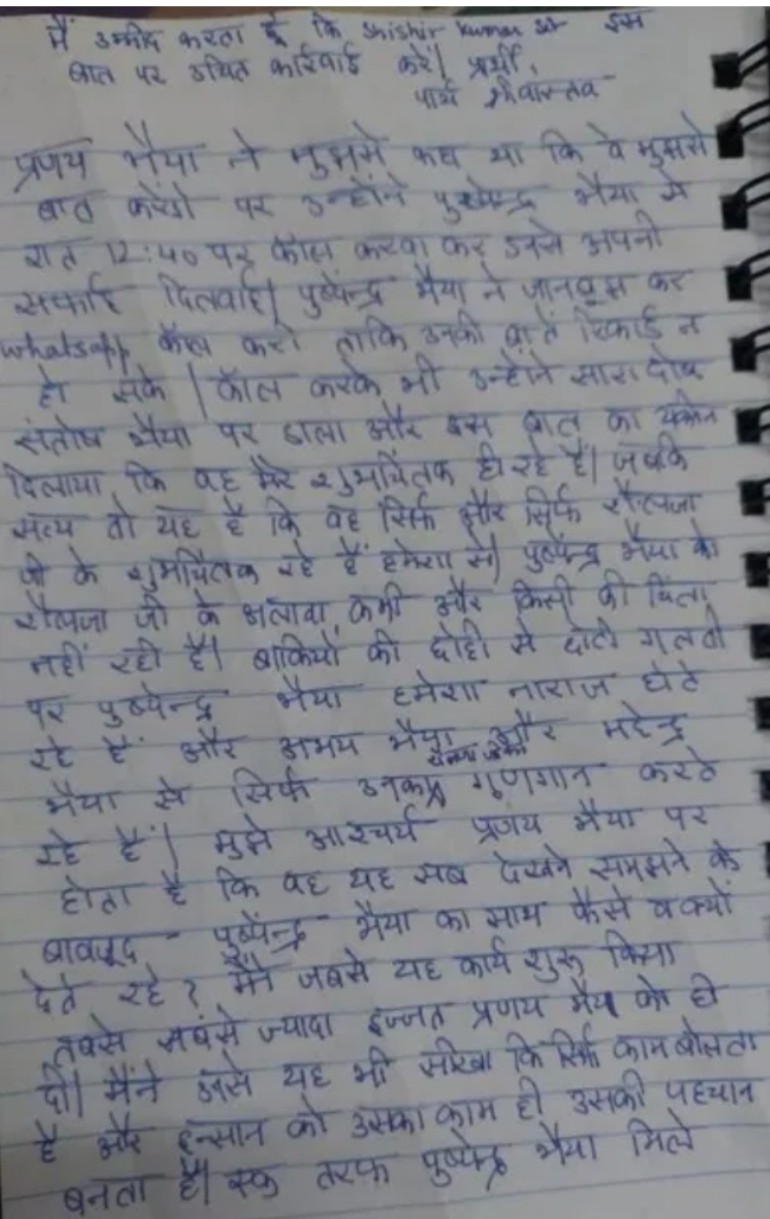 मैं उम्मीद करता हूँ कि Shishir Kumar जी इस
बात पर उचित कार्रवाई करें। प्रार्थी,
पार्थ श्रीवास्तव
प्रणय भैया ने मुझसे कहा था कि वे मुझसे
बात करेंगे पर उन्होंने पुष्पेन्द्र भैया से
रात 12:40 पर कॉल करवा कर उनसे अपनी
सफाई दिलवाई। पुष्पेन्द्र भैया ने जानबूझ कर
whatsapp कॉल करी ताकि उनकी बातें रिकार्ड न
हो सके। कॉल करके भी उन्होंने सारा दोष
संतोष भैया पर डाला और इस बात का यकीन
दिलाया कि वह मेरे शुभचिंतक ही रहे हैं। जबकि
सत्य तो यह है कि वह सिर्फ और सिर्फ शैलजा
जी के शुभचिंतक रहे हैं हमेशा से। पुष्पेन्द्र भैया को
शैलजा जी के अलावा कभी और किसी की चिंता
नहीं रही है। बाकियों की छोटी से छोटी गलती
पर पुष्पेन्द्र भैया हमेशा नाराज होते
रहे हैं और अभय भैया और महेन्द्र
भैया से सिर्फ उनका गुणगान करते
रहे हैं। मुझे आश्चर्य प्रणय भैया पर
होता है कि वह यह सब देखने समझने के
बावजूद - पुष्पेन्द्र भैया का साथ कैसे व क्यों
देते रहे? मैंने जबसे यह कार्य शुरू किया
तबसे सबसे ज्यादा इज्जत प्रणय भैया को ही
दी। मैंने उनसे यह भी सीखा कि सिर्फ काम बोलता
है और इन्सान को उसका काम ही उसकी पहचान
बनता है। एक तरफ पुष्पेन्द्र भैया मिले